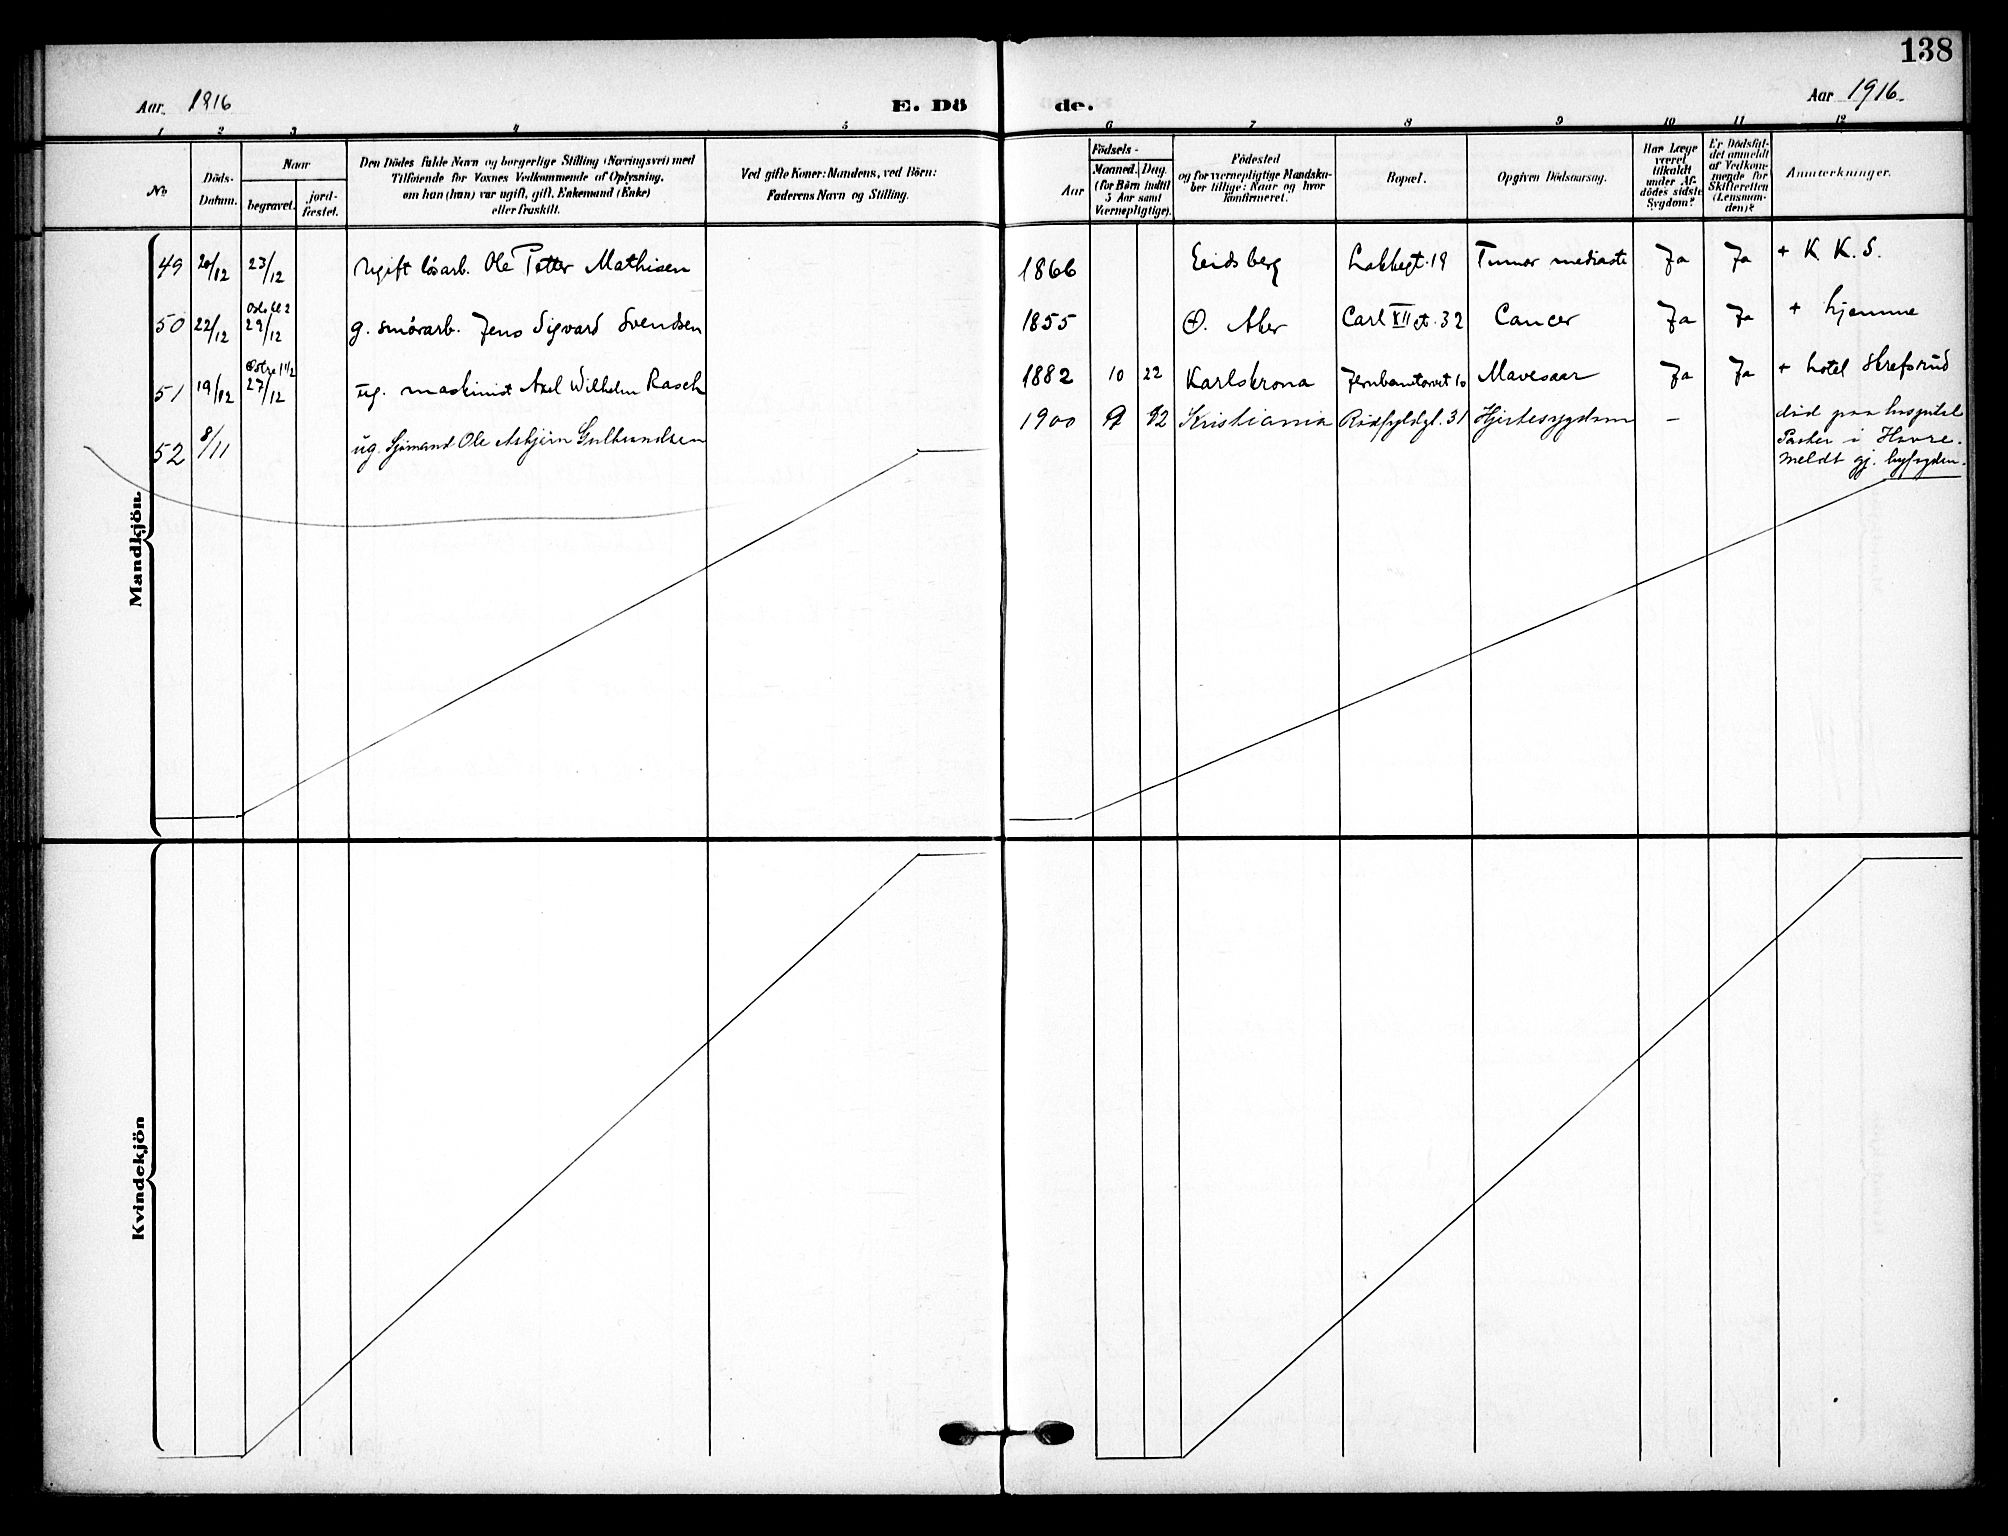 138
Aar. 1916
E. Dö
de.
Aar 1916.
1 2 3 4 5 6 7 8 9 10 11 12
No
Döds-
Datum.
Naar
begravet.
jord-
fæstet.
Den Dödes fulde Navn og borgerlige Stilling (Næringsvei) med
Tilföiende for Voxnes Vedkommende af Oplysning,
om hun (han) var ugift, gift, Enkemand (Enke)
eller fraskilt.
Ved gifte Koner: Mandens, ved Börn:
Faderens Navn og Stilling.
Födsels-
Aar
Maaned. Dag
(for Börn indtil
5 Aar samt
Værnepligtige).
Födested
og for værnepligtige Mandska-
ber tillige: Naar og hvor
konfirmeret.
Bopæl.
Opgiven Dödsaarsag.
Har Læge
været
tilkaldt
under Af-
dödes sidste
Sygdom?
Er Dödsfal-
det anmeldt
af Vedkom-
mende for
Skifteretten
(Lensman-
den)?
Anmærkninger.
Mandkjön
49 20/12 23/12 Ugift lösarb. Ole Petter Mathisen 1866 Eidsberg Lakkegt. 19 Tumor mediasti Ja Ja + K. K. S.
50 22/12 Oslo kl 2 29/12 g. smörarb. Jens Sigvard Svendsen 1855 Ø. Aker Carl XII gt. 32 Cancer Ja Ja + hjemme
51 19/12 Østre 1 1/2 27/12 ug. maskinist Axel Wilhelm Rasch 1882 10 22 Karlskrona Jernbanetorvet 10 Mavesaar Ja Ja + hotel
52 8/11 ug. Sjömand Ole Asbjörn Gulbrandsen 1900 Kristiania Rödfyldgt. 31 Hjertesygdom - död paa hospital
Paster i Havre.
Meldt gj. byfogden.
Kvindekjön